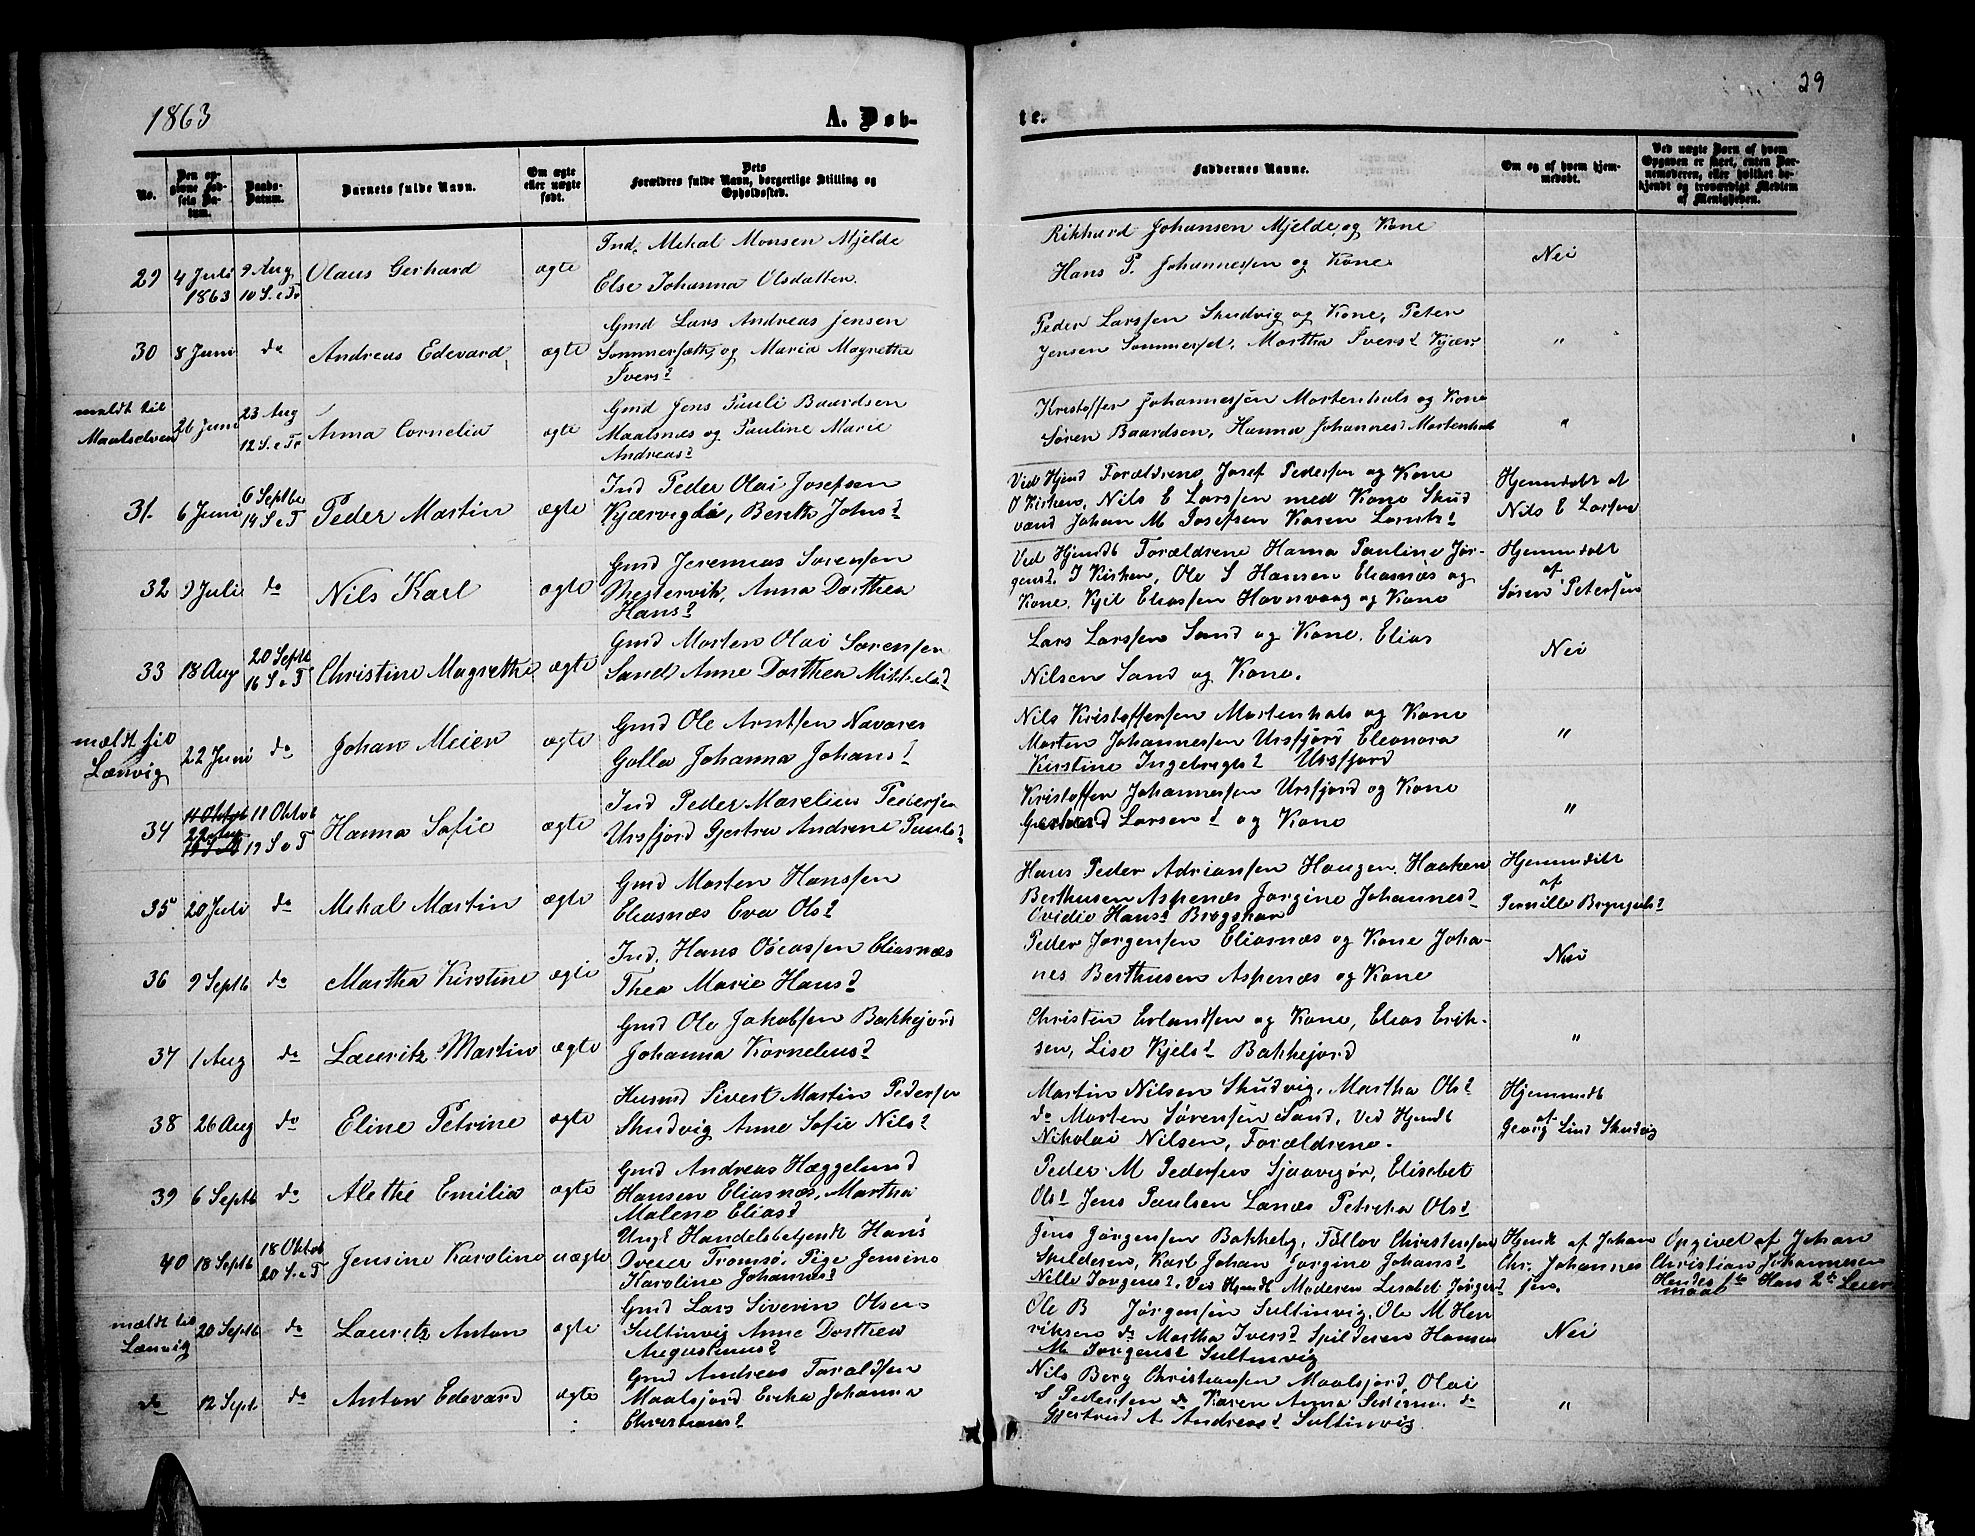 1863
A. Døb-
te.
29
No.
Den opgivne Fødsels Datum.
Daabs-Datum.
Barnets fulde Navn.
Om ægte eller uægte født.
Dets Forældres fulde Navn, borgerlige Stilling og Opholdssted.
Faddernes Navne.
Om og af hvem hjemmedøbt.
Ved uægte Børn af hvem Opgaven er skeet, enten Barnemoderen, eller hvilket bekjendt og troværdigt Medlem af Menigheden.
29
4 Juli 1863
9 Aug 10 S. e Tr
Olaus Gerhard
ægte
Ind. Mikal Monsen Mjelde
Else Johanna Olsdatter.
Rikhard Johansen Mjelde og Kone
Hans P. Johannessen og Kone
Nei
30
8 Juni
do
Andreas Edevard
ægte
Gmd Lars Andreas Jensen
Sommersæth, og Maria Magrethe
Ivers?
Peder Larssen Skudvig og Kone, Peter
Jensen Sommerset, Martha Ivers? Kjær
"
meldt til
Maalselven
26 Juni
23 Aug
12 S. e Tr
Anna Cornelia
ægte
Gmd Jens Pauli Baardsen
Maalsnæs og Pauline Marie
Andreas?
Kristoffer Johannessen Mortenhals og Kone
Søren Baardsen, Hanna Johannes? Mortenhals
"
31.
6 Juni
6 Septbr
14 S e T
Peder Martin
ægte
Ind Peder Olai Josefsen
Kjærvig do, Berith Johns?
Ved Hjmd Forældrene Josef Pedersen og Kone
I Kirken, Nils E Larssen med Kone Skud
vand Johan M Josefsen Karen Lornts?
Hjemmdøbt af
Nils E Larsen
32
9 Juli
do
Nils Karl
ægte
Gmd Jeremias Sørensen
Mestervik, Anna Dorthea
Hans?
Ved Hjemdt Forældrene Hanna Pauline Jør-
gens?. I Kirken, Ole S Hansen Eliasnæs og
Kone. Kjil Eliassen Havnvaag og Kone
Hjemmdøbt
af
Søren Petersen
33
18 Aug
20 Septb
16 S e T
Christine Magrethe
ægte
Gmd Morten Olai Sørensen
Sand Anne Dorthea Mikkels?
Lars Larssen Sand og Kone. Elias
Nilsen Sand og Kone.
Nei
meldt til
Lænvig
22 Juni
do
Johan Meier
ægte
Gmd Ole Arntsen Navares
Golla Johanna Johans?
Nils Kristoffersen Mortenhals og Kone
Morten Johannessen Ursfjord Eleonora
Kirstine Ingebregts? Ursfjord
"
34
22 Aug
11 Oktob
19 S e T
Hanna Sofie
ægte
Ind Peder Marelius Pedersen
Ursfjord Gjertru Andrene Pauls?
Kristoffer Johannessen Ursfjord og Kone
Gerhard Larsen? og Kone
"
35
20 Juli
do
Mikal Martin
ægte
Gmd Morten Hanssen
Eliasnæs Eva Ols?
Hans Peder Adriansen Haugen. Haaken
Berthusen Aspenæs Jørgine Johannes?
Ovidie Hans? Brogskar
Hjemmdøbt
af
Pernille Brynjels?
36
9 Septb
do
Martha Kirstine
ægte
Ind. Hans Oseassen Eliasnæs
Thea Marie Hans?
Peder Jørgensen Eliasnæs og Kone Joha-
nes Berthusen Aspenæs og Kone
Nei
37
1 Aug
do
Lauritz Martin
ægte
Gmd Ole Jakobsen Bakkejord
Johanna Kornelius?
Christen Erlandsen og Kone, Elias Erik-
sen, Lise Kjels? Bakkejord
"
38
26 Aug
do
Eline Petrine
ægte
Husmd Sivert Martin Pedersen
Skudvig Anne Sofie Nils?
Martin Nilsen Skudvig, Martha Ols?
do Morten Sørensen Sand, Ved Hjemdt
Nikolai Nilsen, Forældrene.
Hjemmdt
af
Georg Lind Skudvig
39
6 Septb
do
Alethe Emilie
ægte
Gmd Andreas Hæggelund
Hansen Eliasnæs, Martha
Malene Elias?
Peder M Pedersen Sjaavigør, Elisebet
Ols? Jens Paulsen Lanæs Petrika Ols?
40
18 Septb
18 Oktob
20 S. e T
Jensine Karoline
uægte
Ungk Handelsbetjendt Hans
Dreier Tromsø, Pige Jensine
Karoline Johannes?
Jens Jørgensen Bakkeby, Tollov Christensen
Spilderen, Karl Johan Jørgine Johans?
Nille Jørgens?. Ved Hjemdt Moderen Lisabet Jørgens?
Hjemdt af Johan
Chr. Johannes
sen.
Opgivet af Johan
Christian Johannesen
Hendes 1te Hans 2det Leier
maal
meldt til
Lænvig
20 Septb
do
Lauritz Anton
ægte
Gmd Lars Siverin Olsen
Sultinvig Anne Dorthea
Augustinus?
Ole B Jørgensen Sultinvig, Ole M Hen
riksen do Martha Ivers? Spilderen Hansine
M Jørgens? Sultinvig
Nei
do
12 Sept
do
Anton Edevard
ægte
Gmd Andreas Toraldsen
Maalsjord Erika Johanna
Christians?
Nils Berg Christiansen Maalsjord, Olai
S Pedersen do Karen Anna Sistine do
Gjertrud A Andreas? Sultinvig
"